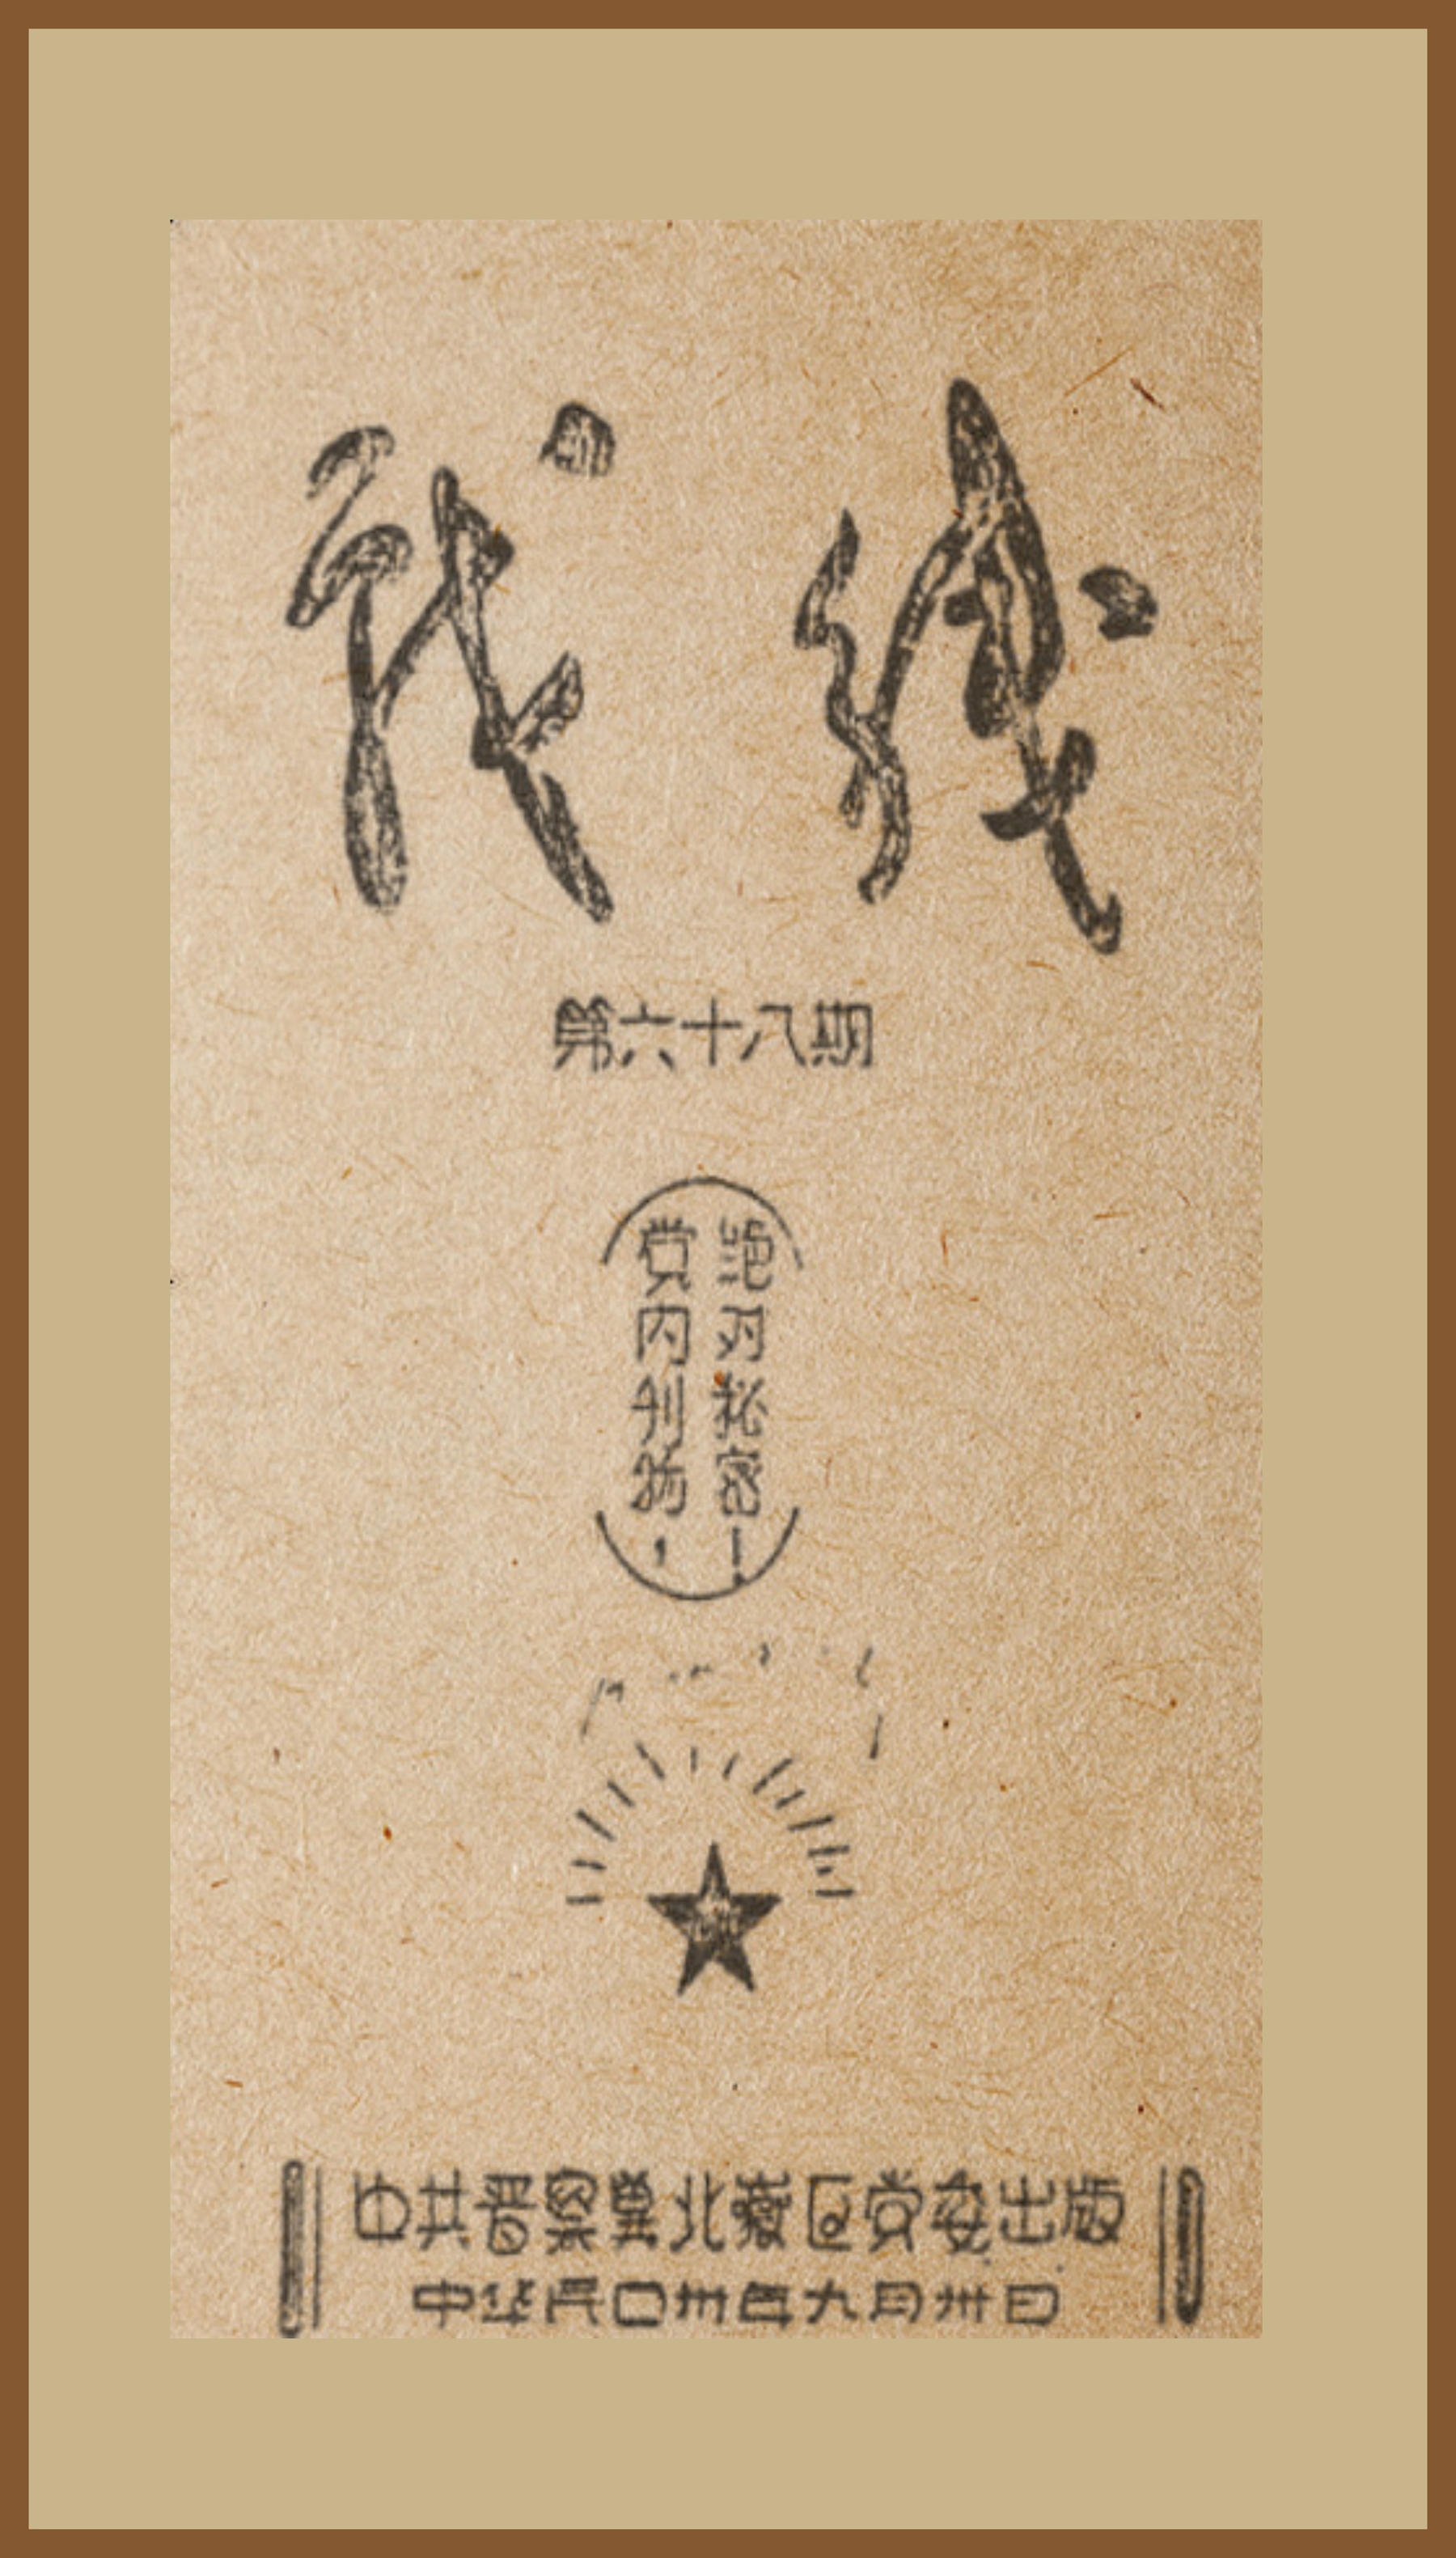 戰綫
第六十八期
党内刊物，
绝对秘密！
中共晋察冀北嶽区党委出版
中华民囗卅年九月卅日